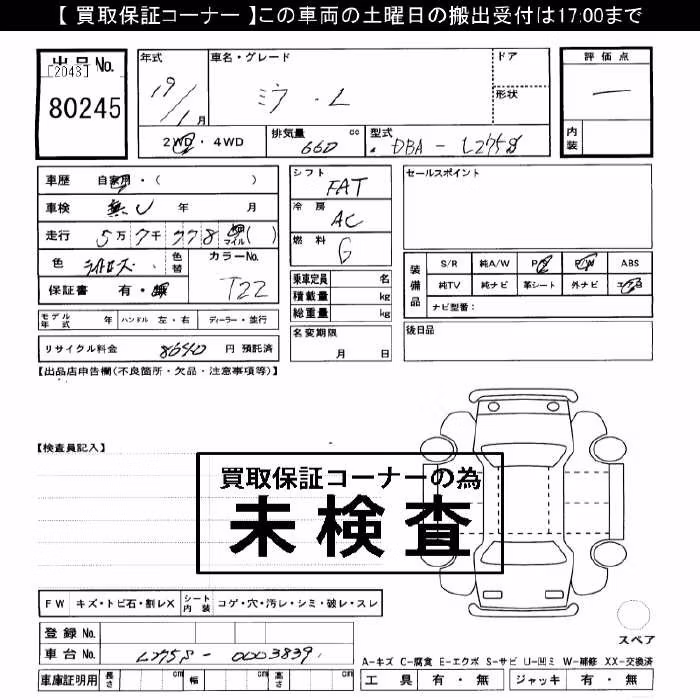 【 買取保証コーナー 】この車両の土曜日の搬出受付は17:00まで
出品No.
[2043]
80245
年式
19/1月
車名・グレード
ミラ・L
ドア
形状
評価点
内装
2WD・4WD
排気量 660 cc
型式 DBA-L275S
車歴 自家用・( )
車検 無し 年 月
走行 5万7千778 マイル( )
色 ライトローズ 色替 カラーNo. T22
保証書 有・無
モデル年式 年 ハンドル 左・右 ディーラー・並行
リサイクル料金 8640 円 預託済
シフト FAT
冷房 AC
燃料 G
乗車定員 名
積載量 kg
総重量 kg
名変期限
月 日
セールスポイント
装備品
S/R 純A/W P/S P/W ABS
純TV 純ナビ 革シート 外ナビ エアB
ナビ型番:
後日品
【出品店申告欄(不良箇所・欠品・注意事項等)】
【検査員記入】
買取保証コーナーの為
未検査
FW キズ・トビ石・割レX シート内装 コゲ・穴・汚レ・シミ・破レ・スレ
登録No.
車台No. L275S-0003839
車庫証明用 長さ cm 幅 cm 高さ cm
スペア
A-キズ C-腐食 E-エクボ S-サビ U-凹ミ W-補修 XX-交換済
工具 有・無 ジャッキ 有・無